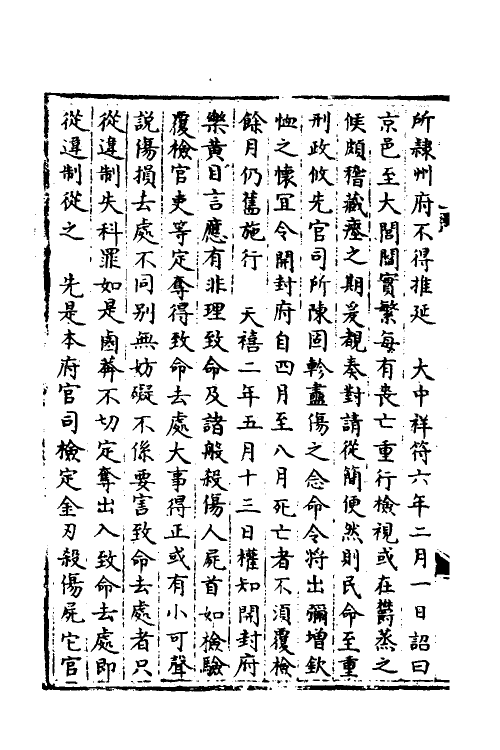 所隷州府不得推延　大中祥符六年二月一日詔曰
京邑至大閭閻實繁每有喪亡重行檢視或在欝蒸之
候頗稽藏瘞之期爰覩奏對請從簡便然則民命至重
刑政攸先官司所陳固軫盡傷之念命令將出彌增欽
恤之懷冝令開封府自四月至八月死亡者不湏覆檢
餘月仍舊施行　天禧二年五月十三日權知開封府
樂黄目言應有非理致命及諸般殺傷人屍首如檢驗
覆檢官吏等定奪得致命去處大事得正或有小可聲
說傷損去處不同別無妨礙不係要害致命去處者只
從違制失科罪如是鹵莽不切定奪出入致命去處即
從違制從之　先是本府官司檢定金刃殺傷屍它官